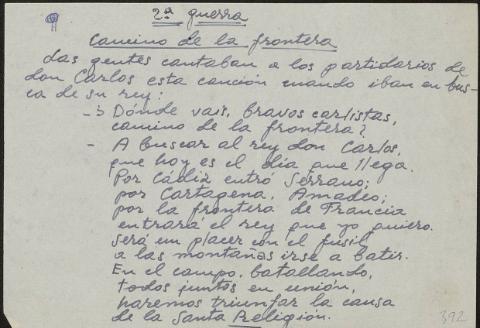 2ª guerra
Camino de la frontera
Las gentes cantaban a los partidarios de
don Carlos esta canción cuando iban en bus-
ca de su rey:
-¿Dónde vais, bravos carlistas,
camino de la frontera?
- A buscar al rey don Carlos,
que hoy es el día que llega.
Por Cádiz entró Serrano;
por Cartagena, Amadeo;
por la frontera de Francia
entrará el rey que yo quiero.
Será un placer con el fusil
a las montañas irse a batir.
En el campo, batallando,
todos juntos en unión,
haremos triunfar la causa
de la Santa Religión.
392